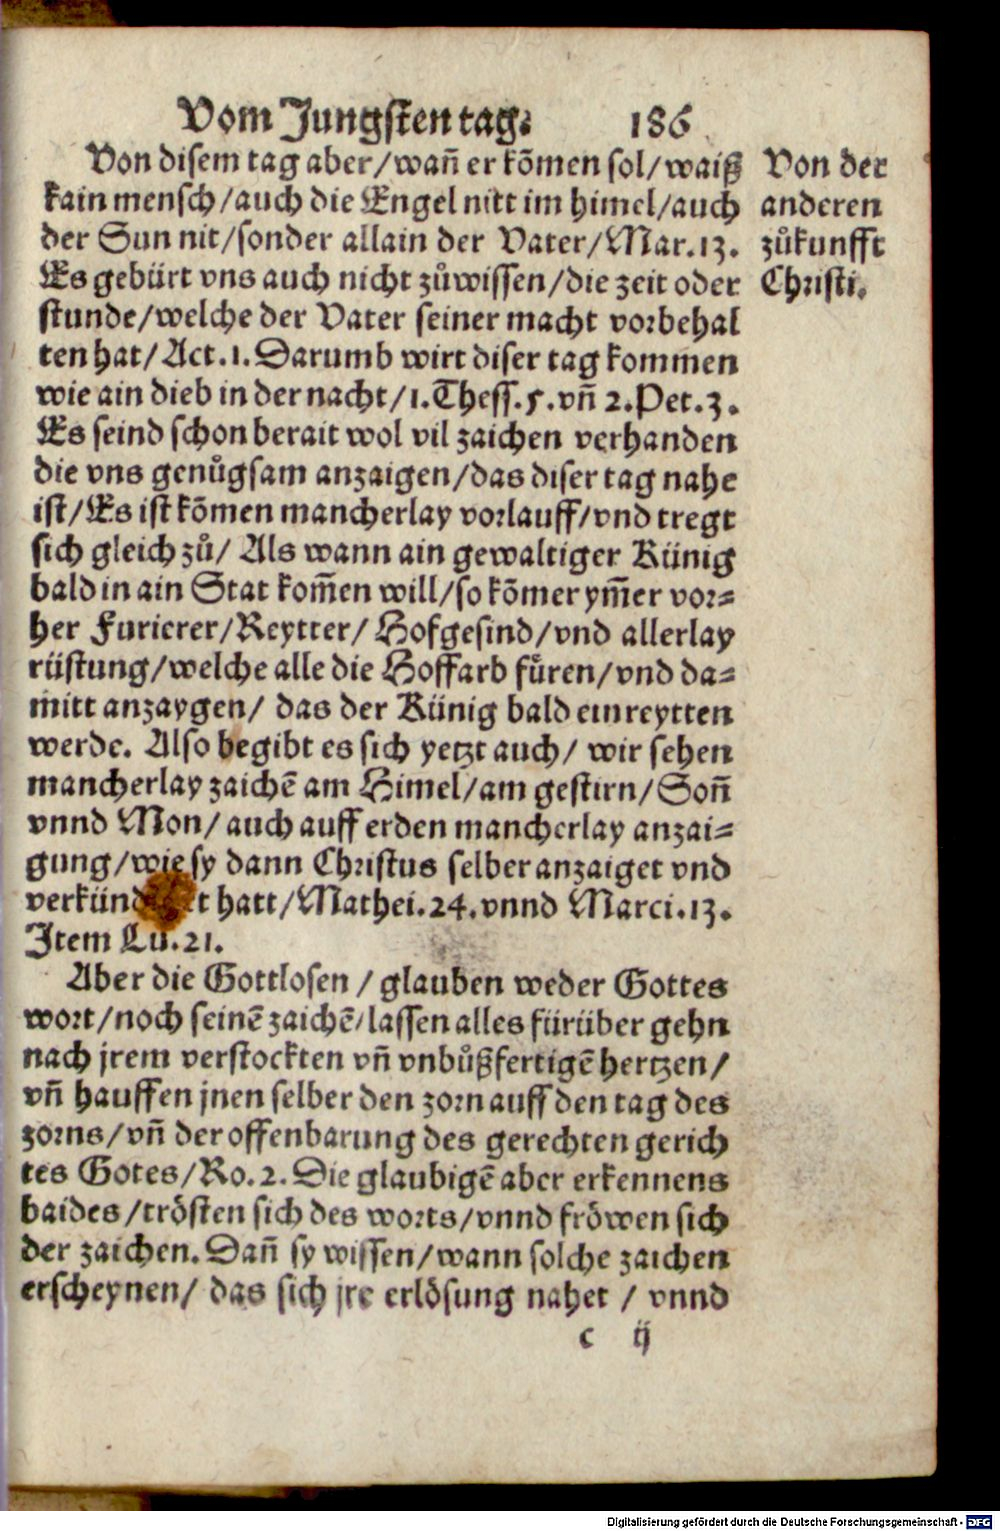 Vom Jungsten tag. 186
Von disem tag aber/wañ er kõmen sol/waiß
kain mensch/auch die Engel nitt im himel/auch
der Sun nit/sonder allain der Vater/Mar.13.
Es gebürt vns auch nicht zůwissen/die zeit oder
stunde/welche der Vater seiner macht vorbehal
ten hat/Act.1.Darumb wirt diser tag kommen
wie ain dieb in der nacht/1.Thess.5.vñ 2.Pet.3.
Es seind schon berait wol vil zaichen verhanden
die vns genůgsam anzaigen/das diser tag nahe
ist/Es ist kõmen mancherlay vorlauff/vnd tregt
sich gleich zů/ Als wann ain gewaltiger Künig
bald in ain Stat kom̃en will/so kõmer ym̃er vor=
her Furierer/Reytter/ Hofgesind/vnd allerlay
rüstung/welche alle die Hoffarb fůren/vnd da=
mitt anzaygen/ das der Künig bald einreytten
werde. Also begibt es sich yetzt auch/ wir sehen
mancherlay zaichẽ am Himel/am gestirn/Soñ
vnnd Mon/auch auff erden mancherlay anzai=
gung/wie sy dann Christus selber anzaiget vnd
verkünd t hatt/Mathei.24.vnnd Marci.13.
Item Lu.21.
Aber die Gottlosen / glauben weder Gottes
wort/noch seinẽ zaichẽ/lassen alles fürüber gehn
nach jrem verstockten vñ vnbůßfertigẽ hertzen/
vñ hauffen jnen selber den zorn auff den tag des
zorns/vñ der offenbarung des gerechten gerich
tes Gotes/Ro.2.Die glaubigẽ aber erkennens
baides/trösten sich des worts/vnnd fröwen sich
der zaichen.Dañ sy wissen/wann solche zaichen
erscheynen/ das sich jre erlösung nahet / vnnd
c ij
Von der
anderen
zůkunfft
Christi.
Digitalisierung gefördert durch die Deutsche Forschungsgemeinschaft - DFG